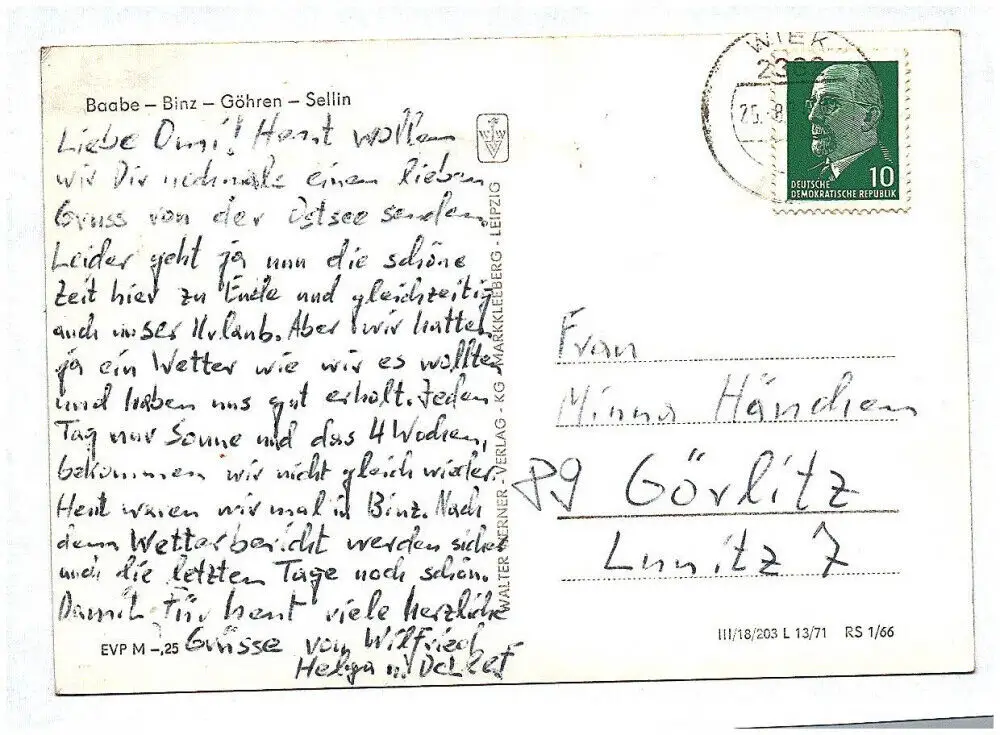 Baabe – Binz – Göhren – Sellin
Liebe Omi! Heut wollen
wir Dir nochmals einen lieben
Gruss von der Ostsee senden.
Leider geht ja nun die schöne
Zeit hier zu Ende und gleichzeitig
auch unser Urlaub. Aber wir hatten
ja ein Wetter wie wir es wollten
und haben uns gut erholt. Jeden
Tag nur Sonne und das 4 Wochen,
bekommen wir nicht gleich wieder.
Heut waren wir mal in Binz. Nach
dem Wetterbericht werden sicher
auch die letzten Tage noch schön.
Damit für heut viele herzliche
Grüsse von Wilfried
Helga u. Detlef
EVP M –,25
WALTER WERNER - VERLAG - KG MARKKLEEBERG - LEIPZIG
WIEK
DEUTSCHE
DEMOKRATISCHE REPUBLIK
10
Frau
Minna Hänchen
89 Görlitz
Lunitz 7
III/18/203 L 13/71 RS 1/66